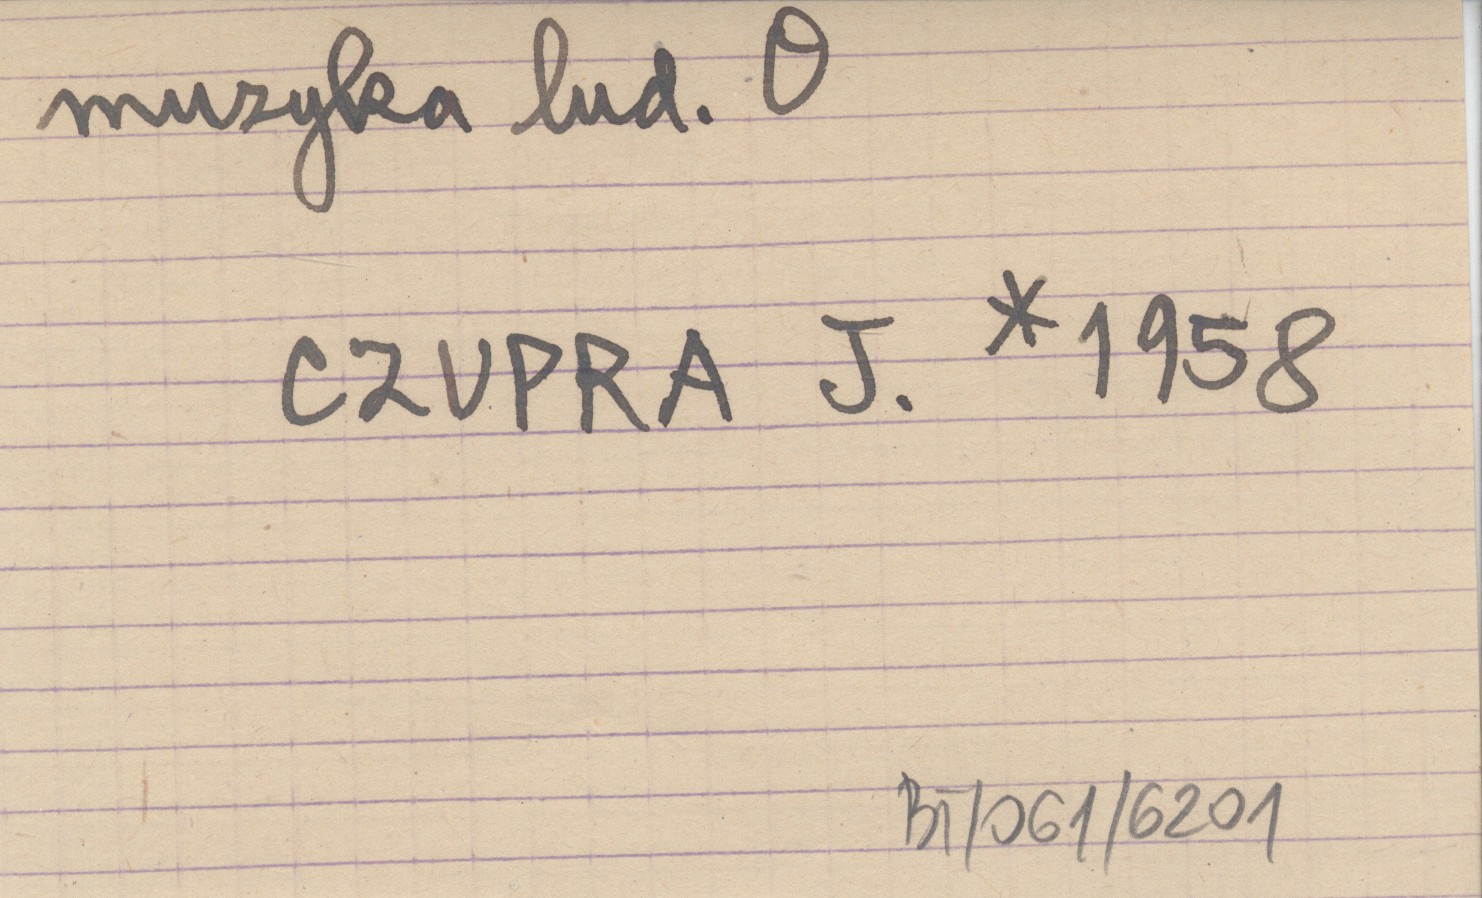 muzyka lud. O
CZUPRA J. *1958
BI/061/6201